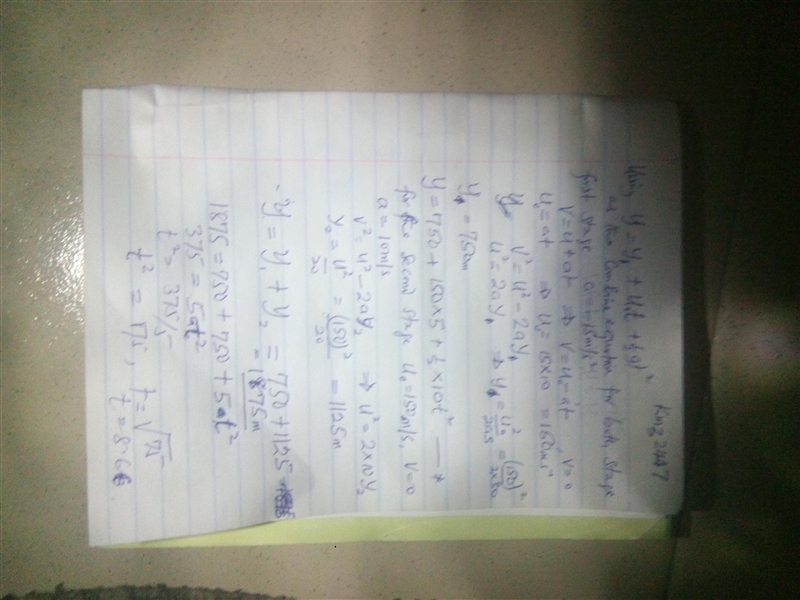 Kmg2447
Using y = y₁ + u₀t + ½gt²
as the combine equation for both stage
first stage a = 15m/s²
V = u + at ⇒ V = u₀ - at V = 0
u₀ = at ⇒ u₀ = 15×10 = 150ms⁻¹
V² = u² - 2ay₁
u² = 2ay₁ ⇒ y₁ = u₀²/ = (150)²/
y₁ = 750m
y = 750 + 150×5 + ½×10t² — *
for the second stage u₀ = 150m/s, V = 0
a = 10m/s
V² = u² - 2ay₂ ⇒ u² = 2×10y₂
y₂ = u²/20 = (150)²/20 = 1125m
y = y₁ + y₂ = 750 + 1125
= 1875m
1875 = 750 + 750 + 5t²
375 = 5t²
t² = 375/5
t² = 75, t = √75
t = 8.66